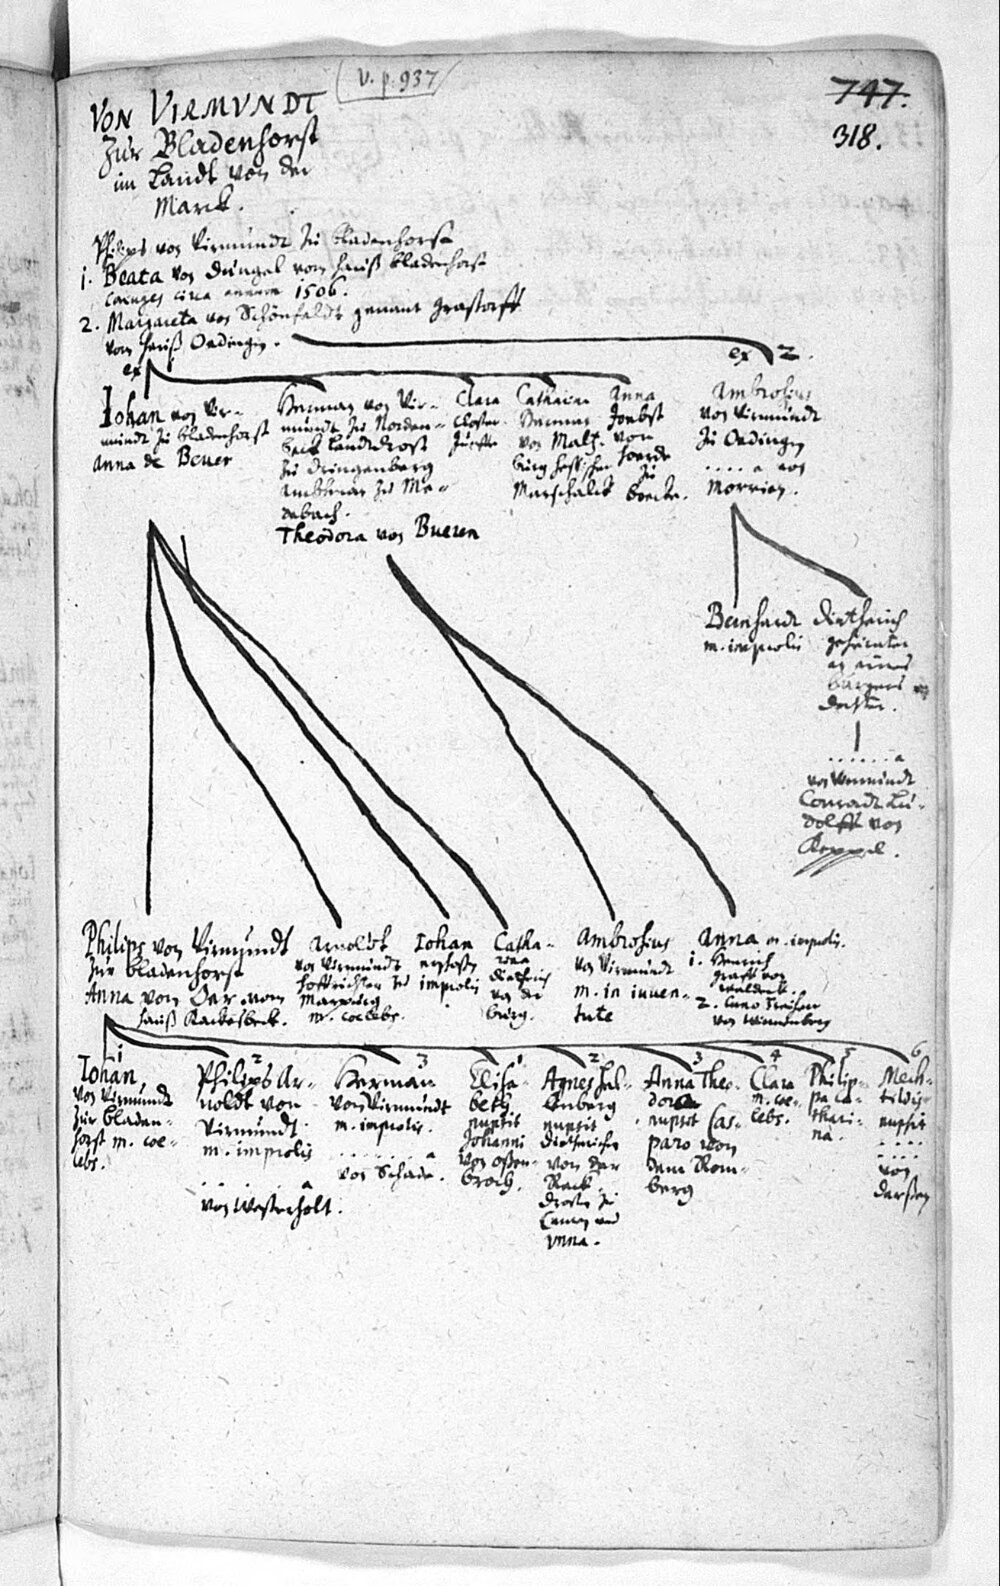 V. p. 937
747.
318.
VON VIRMVNDT
Zur Bladenhorst
im Landt von der
Marck.
Philips von Virmundt zu bladenhorst
1. Beata von Düngel vom hauß bladenhorst
conjuges circa annum 1506.
2. Margareta von Schönfeldt genant grastorff
vom hauß Oedingen.
ex 1
ex 2.
Iohan von Vir-
mundt zu bladenhorst
Anna de Bever
Herman von Vir-
mundt zu Norden-
beck Landtdrost
zu dringenberg
Ambtman zu Me-
debach.
Theodora von Bueren
Clara
Closter-
Jungfer
Catharina
Herman
von Malß-
burg heßischer
Marschalck
Anna
Jobst
von
hoerde
zu
boecke.
Ambrosius
von Virmundt
zu Oedingen
. . . . . a von
Morrien.
Bernhardt
m. improlis
Dietherich
geheiratet
an eines
burgers
dochter.
. . . . . . a
von Virmundt
Conradt Lu-
dolff von
Keppel.
Philips von Virmundt
zur bladenhorst
Anna von Oer vom
hauß Kackesbeck.
Arnoldt
von Virmundt
hoffrichter zu
Marpurg
m. coelebs.
Iohan
erstosen
improlis
Catha-
rina
Dietherich
von der
burg.
Ambrosius
von Virmundt
m. in iuven-
tute
Anna m. improlis.
1. Henrich
graff von
waldeck.
2. Cuno Freiherr
von Winnenberg
1
Iohan
von Virmundt
zur bladen-
horst m. coe-
lebs.
2
Philips Ar-
noldt von
Virmundt
m. improlis
. . . . . . a
von Westerholt.
3
Herman
von Virmundt
m. improlis.
. . . . . . a
von Schade.
1
Elisa-
beth
nupsit
Johanni
von Oßen-
broch.
2
Agnes hal-
lenberg
nupsit
Diethericho
von der
Reck
Droste zu
Camen und
Vnna.
3
Anna Theo-
dora
nupsit Cas-
paro von
dem Rom-
berg
4
Clara
m. coe-
lebs.
5
Philip-
pa Ca-
thari-
na.
6
Mech-
tildis
nupsit
. . . .
. . . .
von
derßen